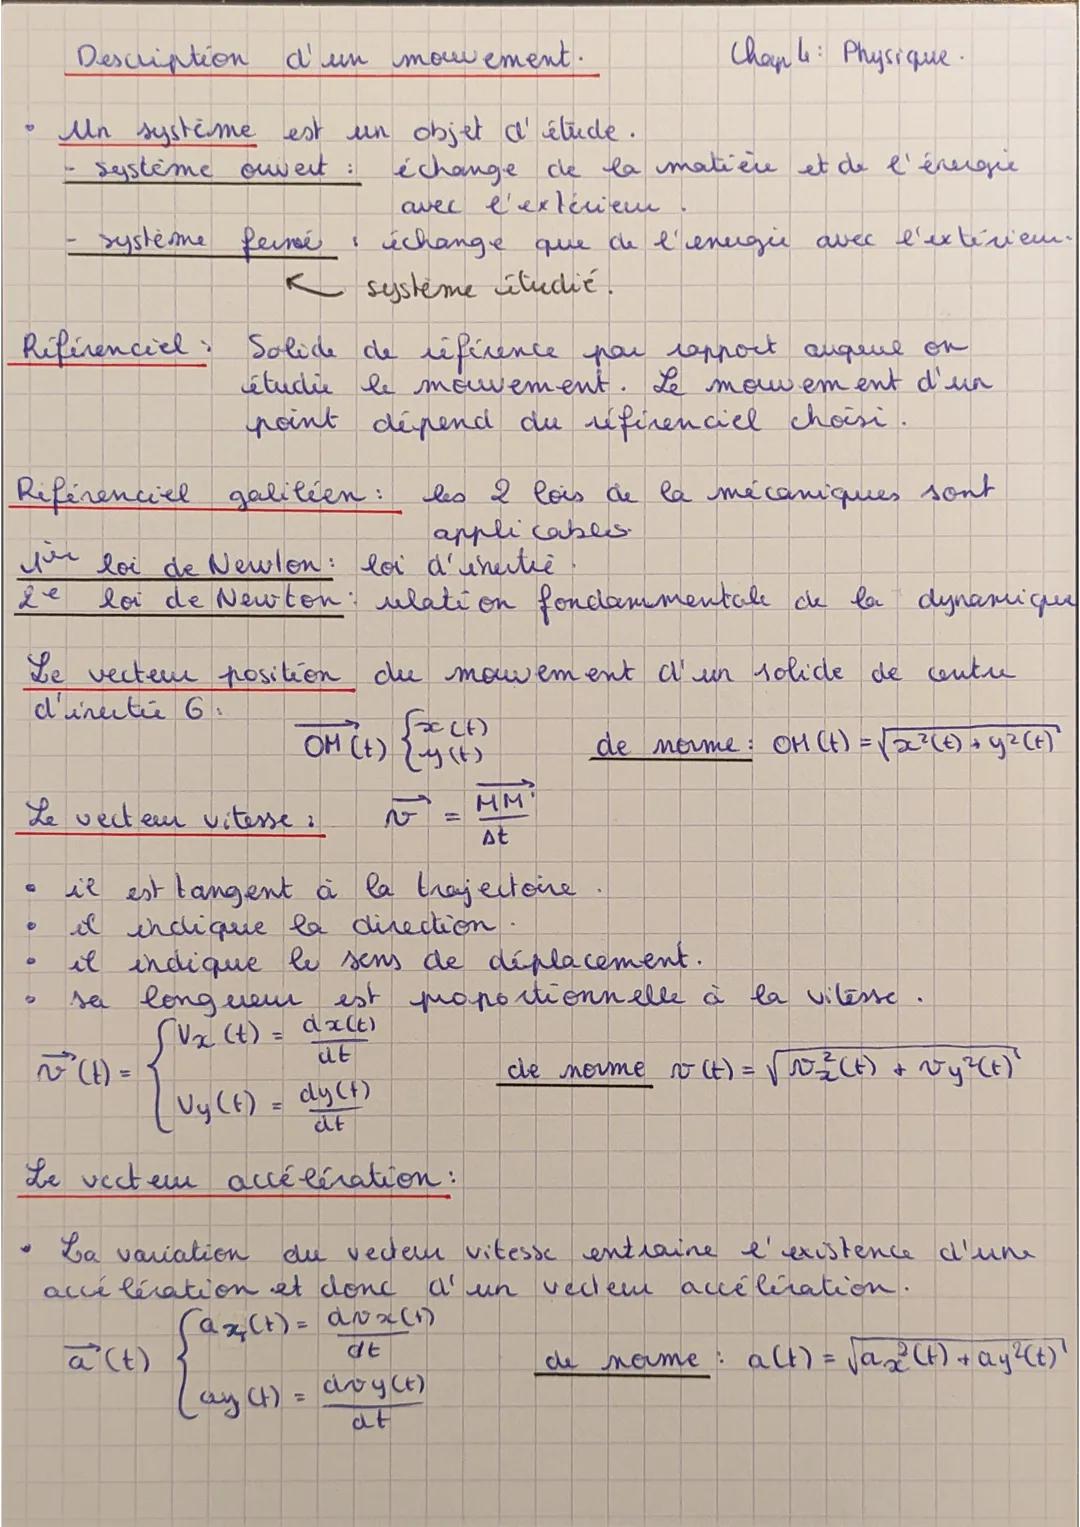 Description d'un mouvement. Chap 4: Physique.
• Un système est un objet d'étude.
- système ouvert : échange de la matière et de l'énergie
avec l'extérieur.
- système fermé : échange que de l'énergie avec l'extérieur.
↖ système étudié.
Référenciel : Solide de référence par rapport auquel on
étudie le mouvement. Le mouvement d'un
point dépend du référenciel choisi.
Référenciel galiléen : les 2 lois de la mécaniques sont
applicables
1ère loi de Newton : loi d'inertie.
2e loi de Newton : relation fondammentale de la dynamique
Le vecteur position du mouvement d'un solide de centre
d'inertie G :
OM⃗(t) { x(t)
y(t) de norme : OM(t) = √(x²(t) + y²(t))
Le vecteur vitesse : v⃗ = MM'⃗ / Δt
• il est tangent à la trajectoire.
• il indique la direction.
• il indique le sens de déplacement.
• sa longueur est proportionnelle à la vitesse.
v⃗(t) = { Vx(t) = dx(t)/dt
Vy(t) = dy(t)/dt de norme v(t) = √(vx²(t) + vy²(t))
Le vecteur accélération :
• La variation du vecteur vitesse entraine l'existence d'une
accélération et donc d'un vecteur accélération.
a⃗(t) { ax(t) = dvx(t)/dt
ay(t) = dvy(t)/dt de norme : a(t) = √(ax²(t) + ay²(t))